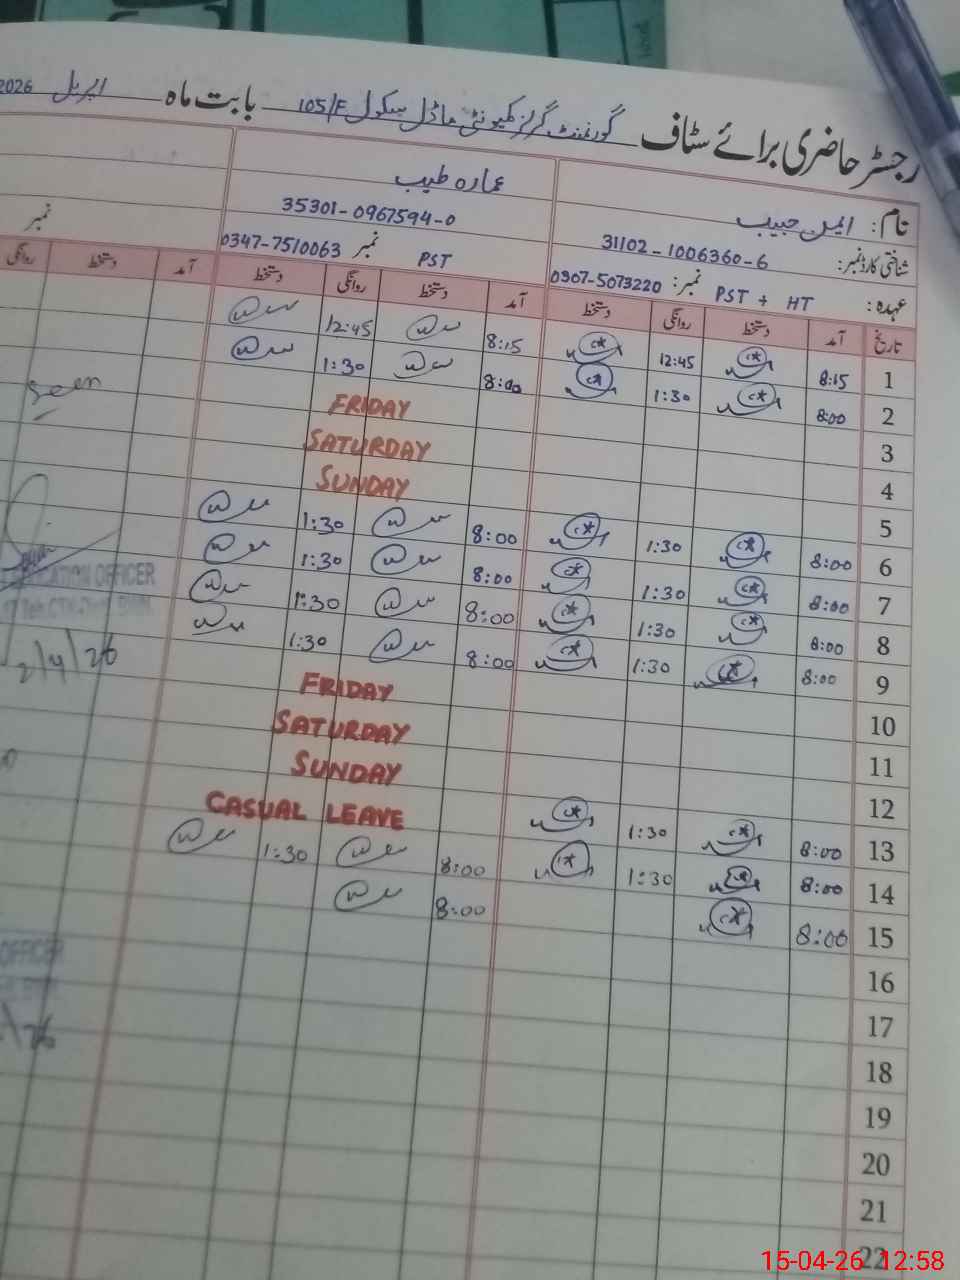 رجسٹر حاضری برائے سٹاف گورنمنٹ گرلز کمیونٹی ماڈل سکول 105/F بابت ماہ اپریل 2026
نام: ایمن حبیب
عمارہ طیب
شناختی کارڈ نمبر: 31102-1006360-6
35301-0967594-0
عہدہ: PST + HT نمبر: 0307-5073220
PST نمبر 0347-7510063
نمبر
تاریخ آمد دستخط روانگی دستخط آمد دستخط روانگی دستخط آمد دستخط روانگی
1 8:15 12:45 8:15 12:45
2 8:00 1:30 8:00 1:30
3 FRIDAY
4 SATURDAY
5 SUNDAY
6 8:00 1:30 8:00 1:30
7 8:00 1:30 8:00 1:30
8 8:00 1:30 8:00 1:30
9 8:00 1:30 8:00 1:30
10 FRIDAY
11 SATURDAY
12 SUNDAY
13 8:00 1:30 CASUAL LEAVE
14 8:00 1:30 8:00 1:30
15 8:00 8:00
16
17
18
19
20
21
22
Seen
OFFICER
2/4/26
OFFICER
15-04-26 12:58